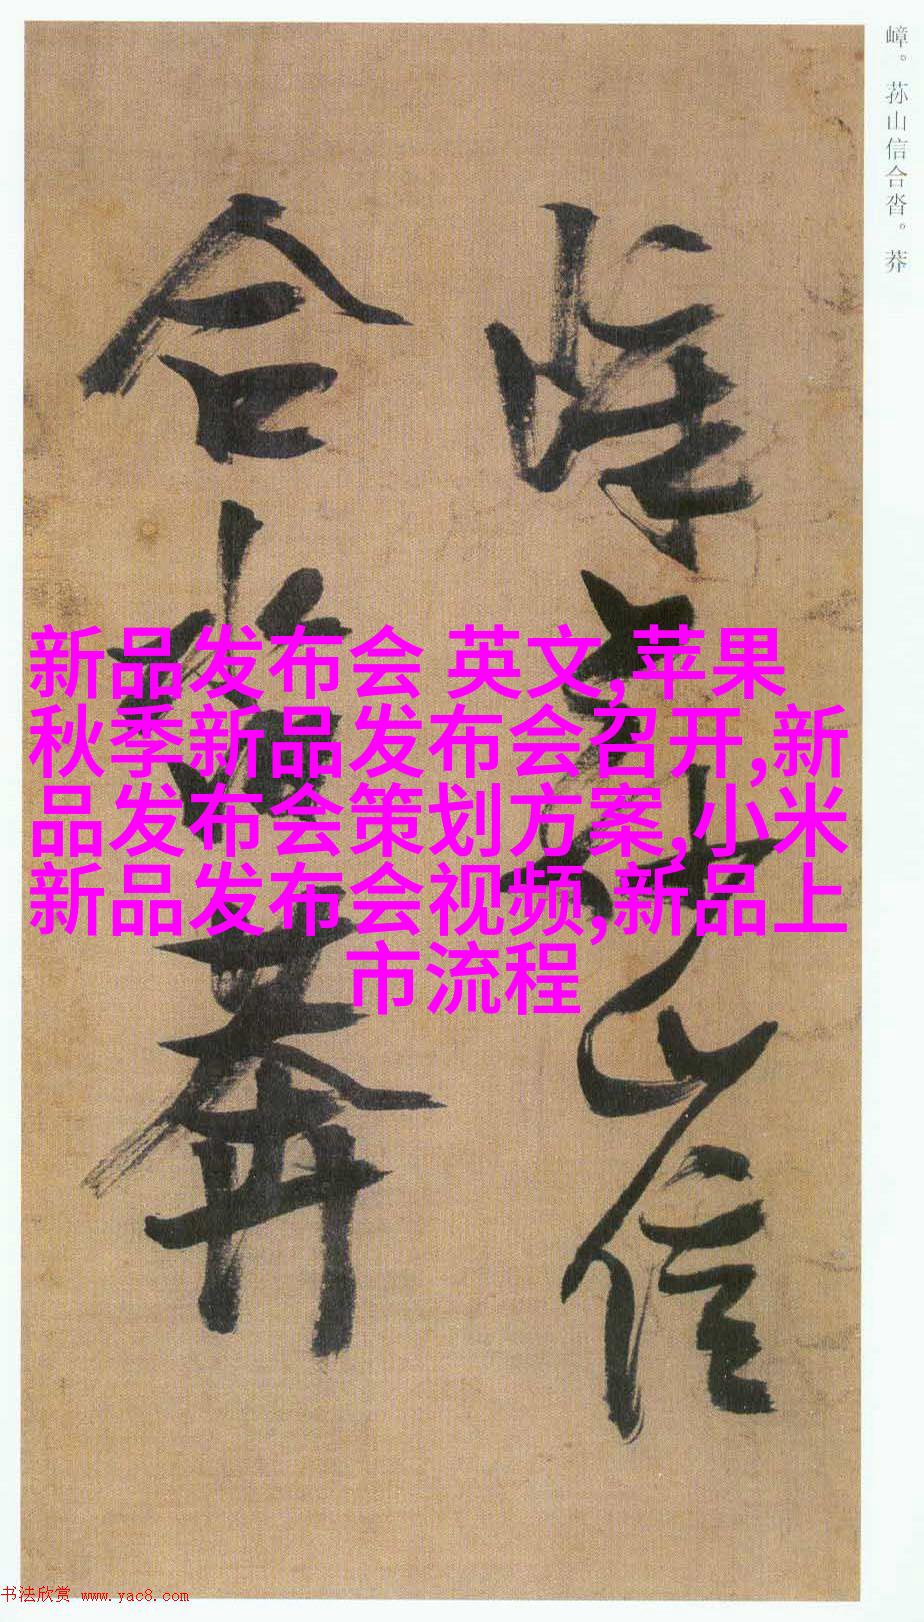 嶂。荪山信合沓。莽
嶂荪山信
合沓莽
新品发布会 英文,苹果
秋季新品发布会召开,新
品发布会策划方案,小米
新品发布会视频,新品上
市流程
书法欣赏 www.yac8.com